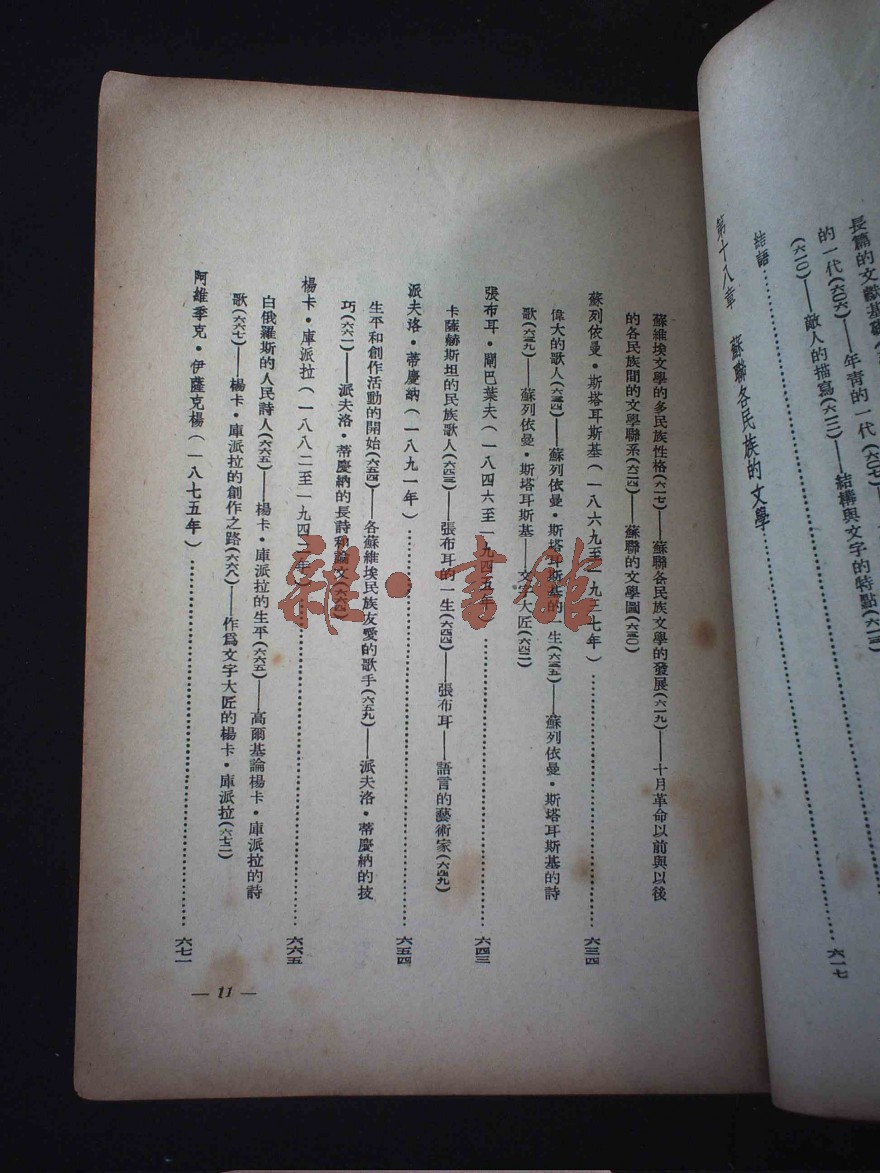 長篇的文獻基礎
的一代(六〇六)——年青的一代(六〇七)
(六一〇)——敵人的描寫(六一二)——結構與文字的特點(六一三)
結語……六一七
第十八章 蘇聯各民族的文學
蘇維埃文學的多民族性格(六一七)——蘇聯各民族文學的發展(六一九)——十月革命以前與以後
的各民族間的文學聯系(六二四)——蘇聯的文學圖(六三〇)
蘇列依曼·斯塔耳斯基(一八六九至一九三七年)……六三四
偉大的歌人(六三四)——蘇列依曼·斯塔耳斯基的一生(六三五)——蘇列依曼·斯塔耳斯基的詩
歌(六三九)——蘇列依曼·斯塔耳斯基——文字大匠(六四二)
張布耳·閘巴葉夫(一八四六至一九四五年)……六四三
卡薩赫斯坦的民族歌人(六四三)——張布耳的一生(六四四)——張布耳——語言的藝術家(六四九)
派夫洛·蒂慶納(一八九一年)……六五四
生平和創作活動的開始(六五四)——各蘇維埃民族友愛的歌手(六五九)——派夫洛·蒂慶納的技
巧(六六一)——派夫洛·蒂慶納的長詩和論文(六六四)
楊卡·庫派拉(一八八二至一九四二年)……六六五
白俄羅斯的人民詩人(六六五)——楊卡·庫派拉的生平(六六五)——高爾基論楊卡·庫派拉的詩
歌(六六七)——楊卡·庫派拉的創作之路(六六八)——作爲文字大匠的楊卡·庫派拉(六七三)
阿雄季克·伊薩克楊(一八七五年)……六七一
— 11 —
雜·書館